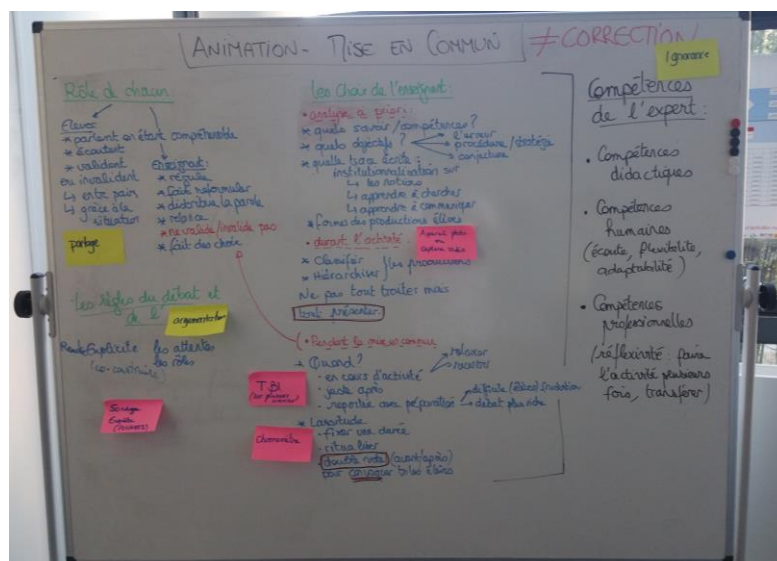 ANIMATION - MISE EN COMMUN
≠ CORRECTION
Ignorance
Rôle de chacun
Elèves
* parlent en étant compréhensible
* écoutent
* valident
ou invalident
↳ entre pairs
↳ grâce à la
situation
Enseignant:
* régule
* fait reformuler
* distribue la parole
* relance
* ne valide/invalide pas
* fait des choix
partage
Les règles du débat et
de l'
argumentation
Explicite les attentes
les rôles
(co-construite)
Sondage
les choix de l'enseignant:
• analyse a priori:
* quels savoir/compétences?
* quels objectifs?
l'erreur
procédure/stratégie
conjecture
* quelle trace écrite:
institutionnalisation sur
↳ les notions
↳ apprendre à chercher
↳ apprendre à communiquer
* formes des productions élèves
Appareil photo
ou
capture vidéo
• durant l'activité:
* Classifier
* Hiérarchiser
les productions
Ne pas tout traiter mais
tout présenter
• Pendant la mise en commun
* Quand?
relancer
• en cours d'activité
• juste après
• reportée avec préparation
débat plus riche
TBI
* Lassitude
• fixer une durée
• ritualiser
• double note (avant/après)
pour convaincre
Chronomètre
Compétences
de l'expert:
• Compétences
didactiques
• Compétences
humaines
(écoute, flexibilité,
adaptabilité)
• Compétences
professionnelles
(réflexivité: faire
l'activité plusieurs
fois, transférer)